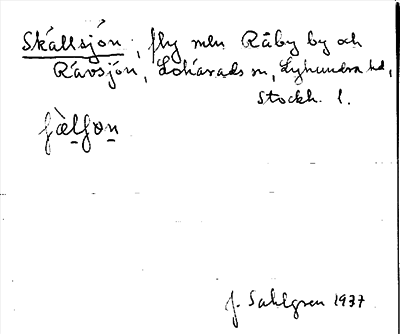 Skállsjón, fly mln Råby by och
Rávsjón, Lohärads sn, Lyhundra hd,
Stockh. l.
J. Sahlgren 1937